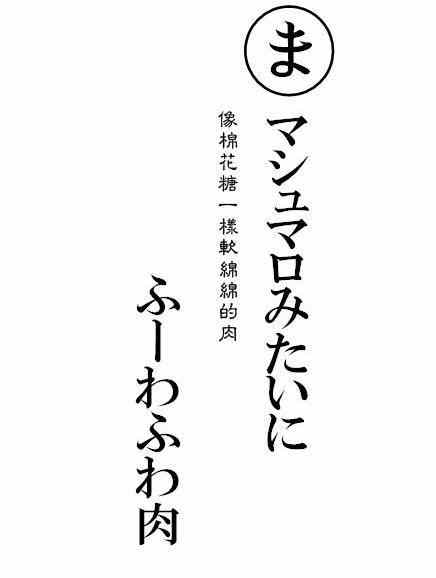 ま
マシュマロみたいに
像棉花糖一樣軟綿綿的肉
ふーわふわ肉